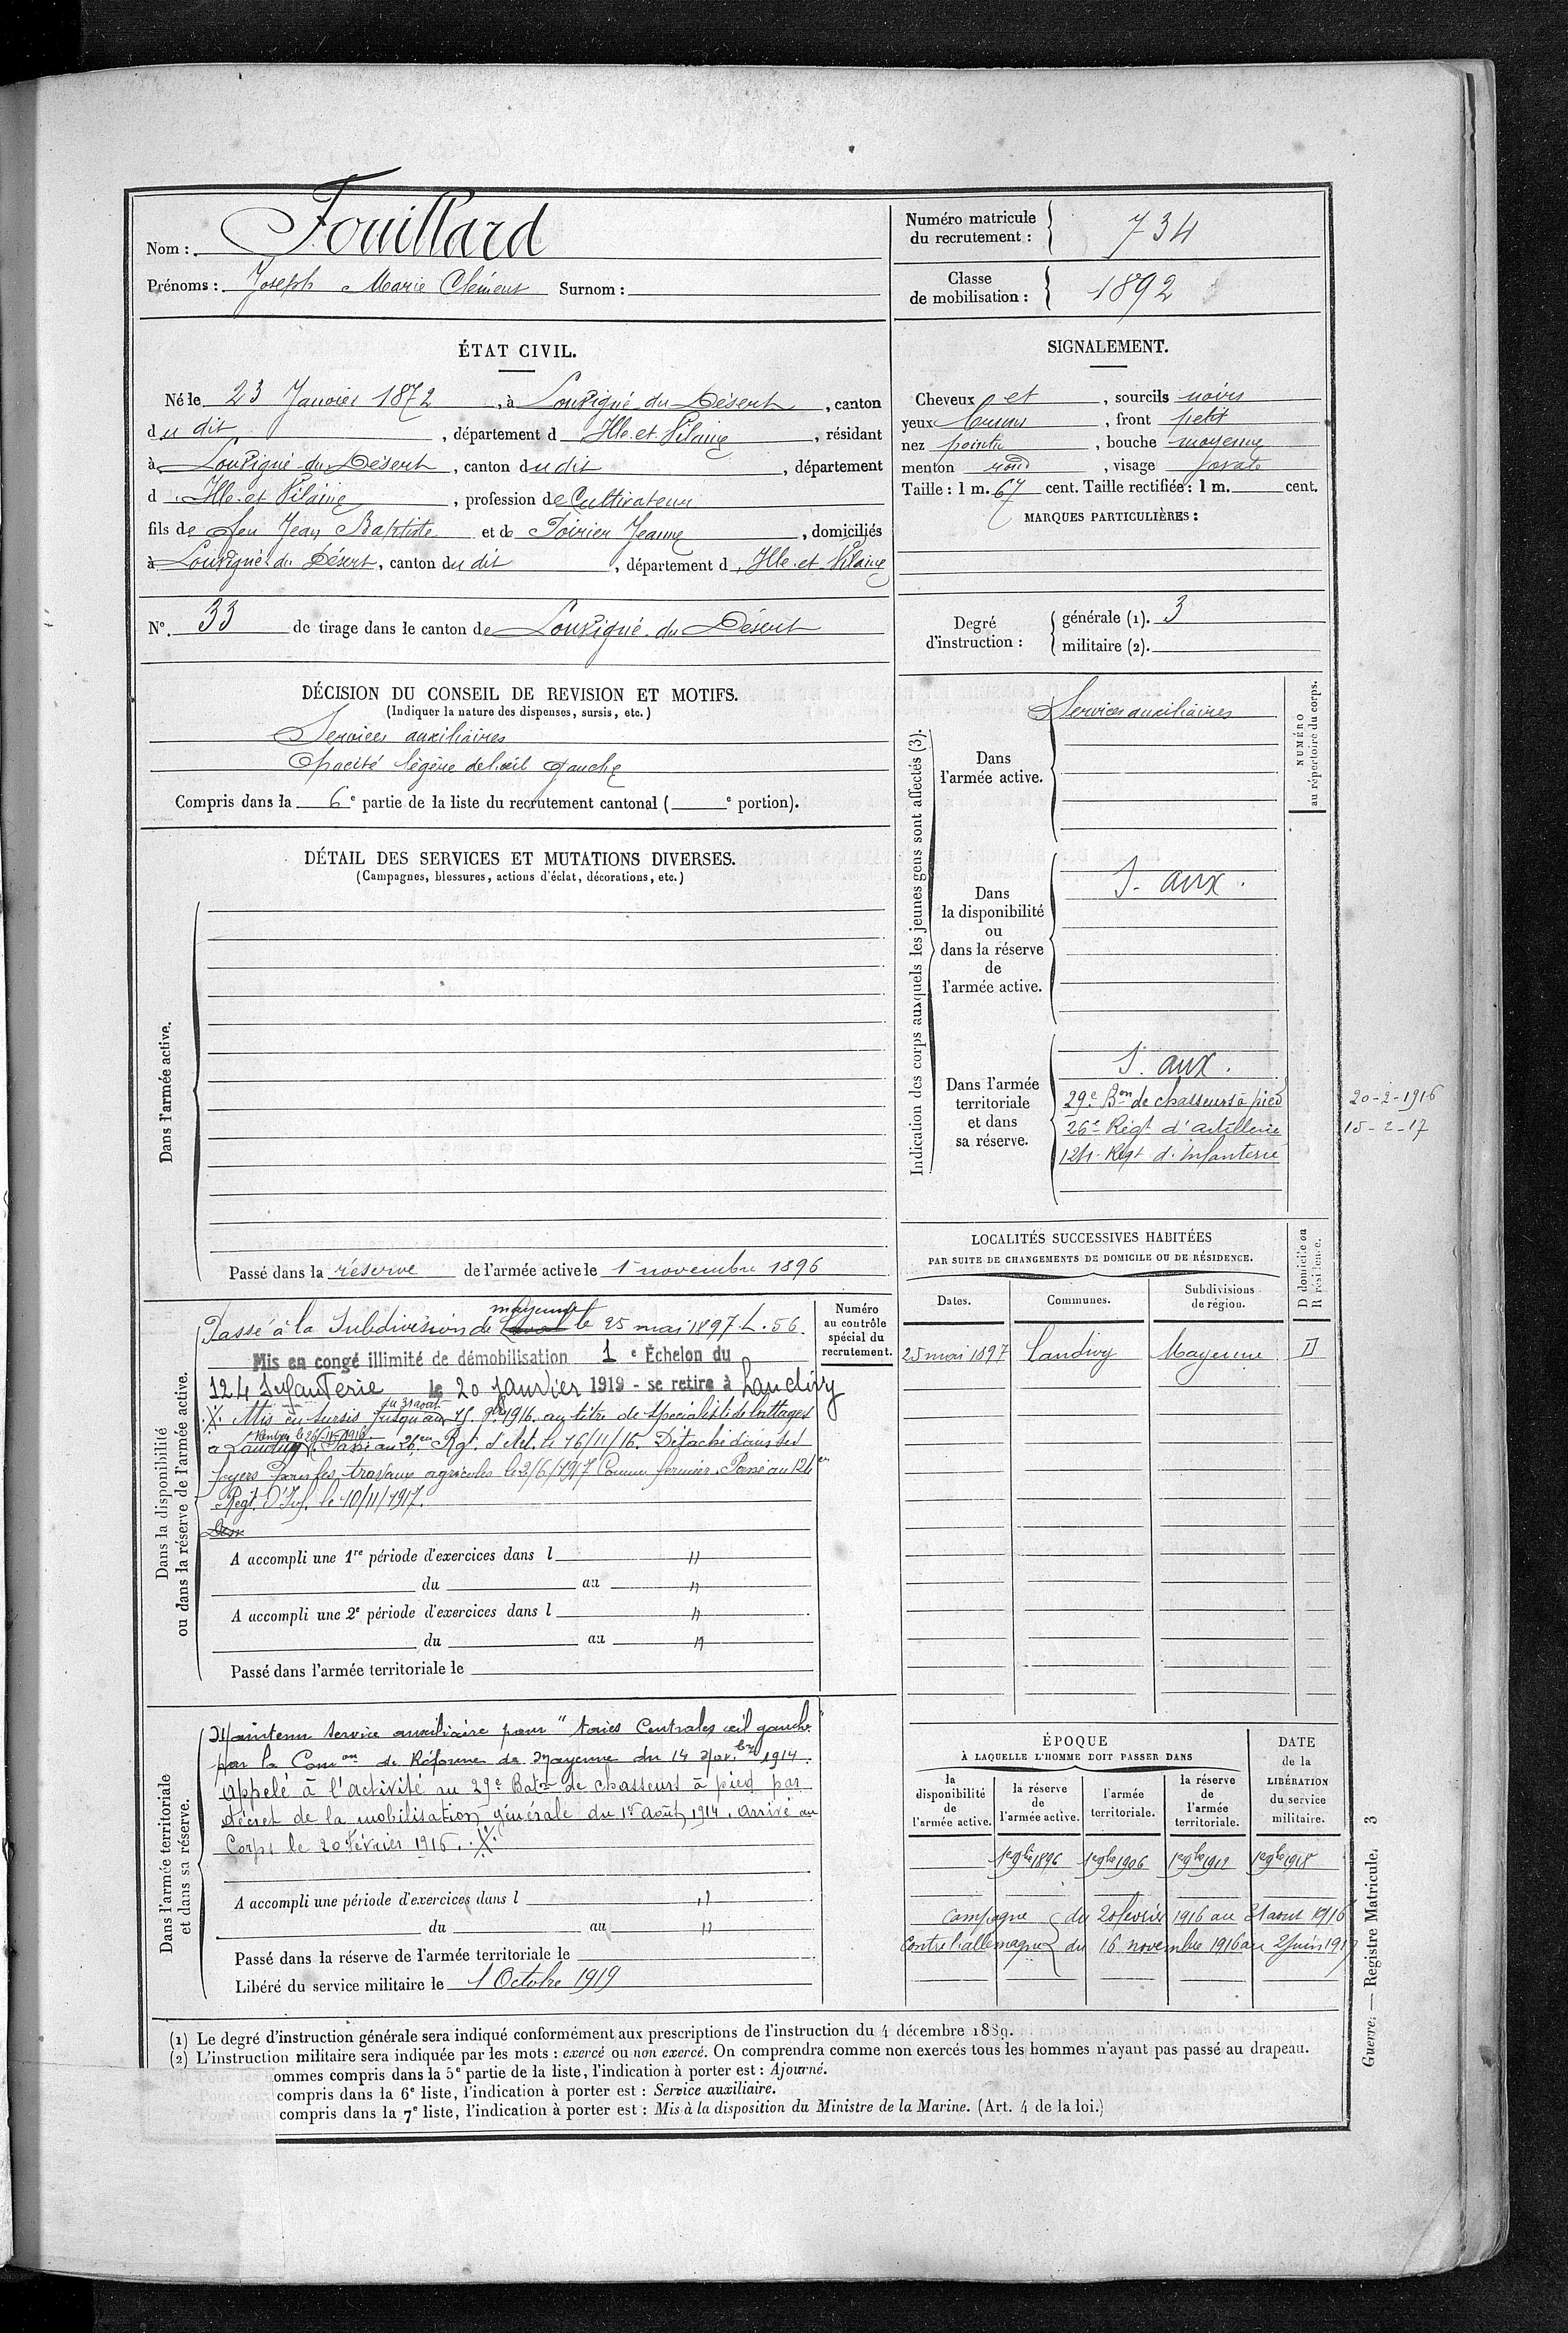 Nom : Fouillard
Prénoms : Joseph Marie Clément Surnom :
Numéro matricule
du recrutement : 734
Classe
de mobilisation : 1892
ÉTAT CIVIL.
Né le 23 Janvier 1872, à Louvigné du Désert, canton
du dit, département d Ille et Vilaine, résidant
à Louvigné du Désert, canton du dit, département
d Ille et Vilaine, profession de Cultivateur
fils de feu Jean Baptiste et de Poirier Jeanne, domiciliés
à Louvigné du Désert, canton du dit, département d Ille et Vilaine
N°. 33 de tirage dans le canton de Louvigné du Désert
SIGNALEMENT.
Cheveux et, sourcils noirs
yeux bruns, front petit
nez pointu, bouche moyenne
menton rond, visage ovale
Taille : 1 m. 67 cent. Taille rectifiée : 1 m. cent.
MARQUES PARTICULIÈRES :
Degré
d'instruction :
générale (1). 3
militaire (2).
DÉCISION DU CONSEIL DE REVISION ET MOTIFS.
(Indiquer la nature des dispenses, sursis, etc.)
Services auxiliaires
Opacité légère de l'œil gauche
Compris dans la 6e partie de la liste du recrutement cantonal ( e portion).
DÉTAIL DES SERVICES ET MUTATIONS DIVERSES.
(Campagnes, blessures, actions d'éclat, décorations, etc.)
Dans l'armée active.
Passé dans la réserve de l'armée active le 1er novembre 1896
Indication des corps auxquels les jeunes gens sont affectés (3).
NUMÉRO
au répertoire du corps.
Dans
l'armée active.
Services auxiliaires
Dans
la disponibilité
ou
dans la réserve
de
l'armée active.
S. aux.
Dans l'armée
territoriale
et dans
sa réserve.
S. aux.
29e Bon de chasseurs à pied 20-2-1916
26e Régt d'artillerie 15-2-17
124 Régt d'infanterie
Dans la disponibilité
ou dans la réserve de l'armée active.
Numéro
au contrôle
spécial du
recrutement.
mayenne
Passé à la Subdivision de Laval le 25 mai 1897. L. 56.
Mis en congé illimité de démobilisation 1 e Échelon du
124 Infanterie le 20 Janvier 1919 - se retire à Landivy
du 31 aout
X. Mis en sursis jusqu'au 15. 9bre 1916. au titre de spécialiste de battages
Rentré le 26/11/1916.
à Landivy. Passé au 26en Rgt. d'Art. le 16/11/16. Détaché dans ses
foyers pour les travaux agricoles le 2/6/1917 Comme fermier. Passé au 124en
Regt. D'Inf. le 10/11/1917.
A accompli une 1re période d'exercices dans l "
du au "
A accompli une 2e période d'exercices dans l "
du au "
Passé dans l'armée territoriale le
LOCALITÉS SUCCESSIVES HABITÉES
PAR SUITE DE CHANGEMENTS DE DOMICILE OU DE RÉSIDENCE.
D domicile ou
R résidence.
Dates. Communes. Subdivisions
de région.
25 mai 1897 Landivy Mayenne D
Dans l'armée territoriale
et dans sa réserve.
Maintenu Service auxiliaire pour "taies Centrales œil gauche"
par la Comon de Réforme de Mayenne du 14 Nov.bre 1914.
Appelé à l'activité au 29e Baton de chasseurs à pied par
décret de la mobilisation générale du 1er Août 1914. Arrivé au
Corps le 20 Février 1916. X.
A accompli une période d'exercices dans l "
du au "
Passé dans la réserve de l'armée territoriale le
Libéré du service militaire le 1 Octobre 1919
ÉPOQUE
À LAQUELLE L'HOMME DOIT PASSER DANS
la
disponibilité
de
l'armée active.
la réserve
de
l'armée active.
l'armée
territoriale.
la réserve
de
l'armée
territoriale.
DATE
de la
LIBÉRATION
du service
militaire.
1er 9bre 1896 1er 9bre 1906 1er 9bre 1912 1er 9bre 1918
Campagne du 20 février 1916 au 31 aout 1916
contre l'allemagne du 16 novembre 1916 au 2 juin 1917
(1) Le degré d'instruction générale sera indiqué conformément aux prescriptions de l'instruction du 4 décembre 1889.
(2) L'instruction militaire sera indiquée par les mots : exercé ou non exercé. On comprendra comme non exercés tous les hommes n'ayant pas passé au drapeau.
ommes compris dans la 5e partie de la liste, l'indication à porter est : Ajourné.
compris dans la 6e liste, l'indication à porter est : Service auxiliaire.
compris dans la 7e liste, l'indication à porter est : Mis à la disposition du Ministre de la Marine. (Art. 4 de la loi.)
Guerre. — Registre Matricule. 3